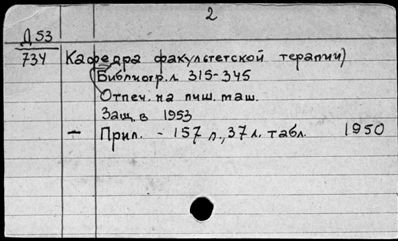 2
Д 53
734 Кафедра факультетской терапии)
Библиогр. л. 315-345
Отпеч. на пиш. маш.
Защ. в 1953
— Прил. - 157 л., 37 л. табл. 1950